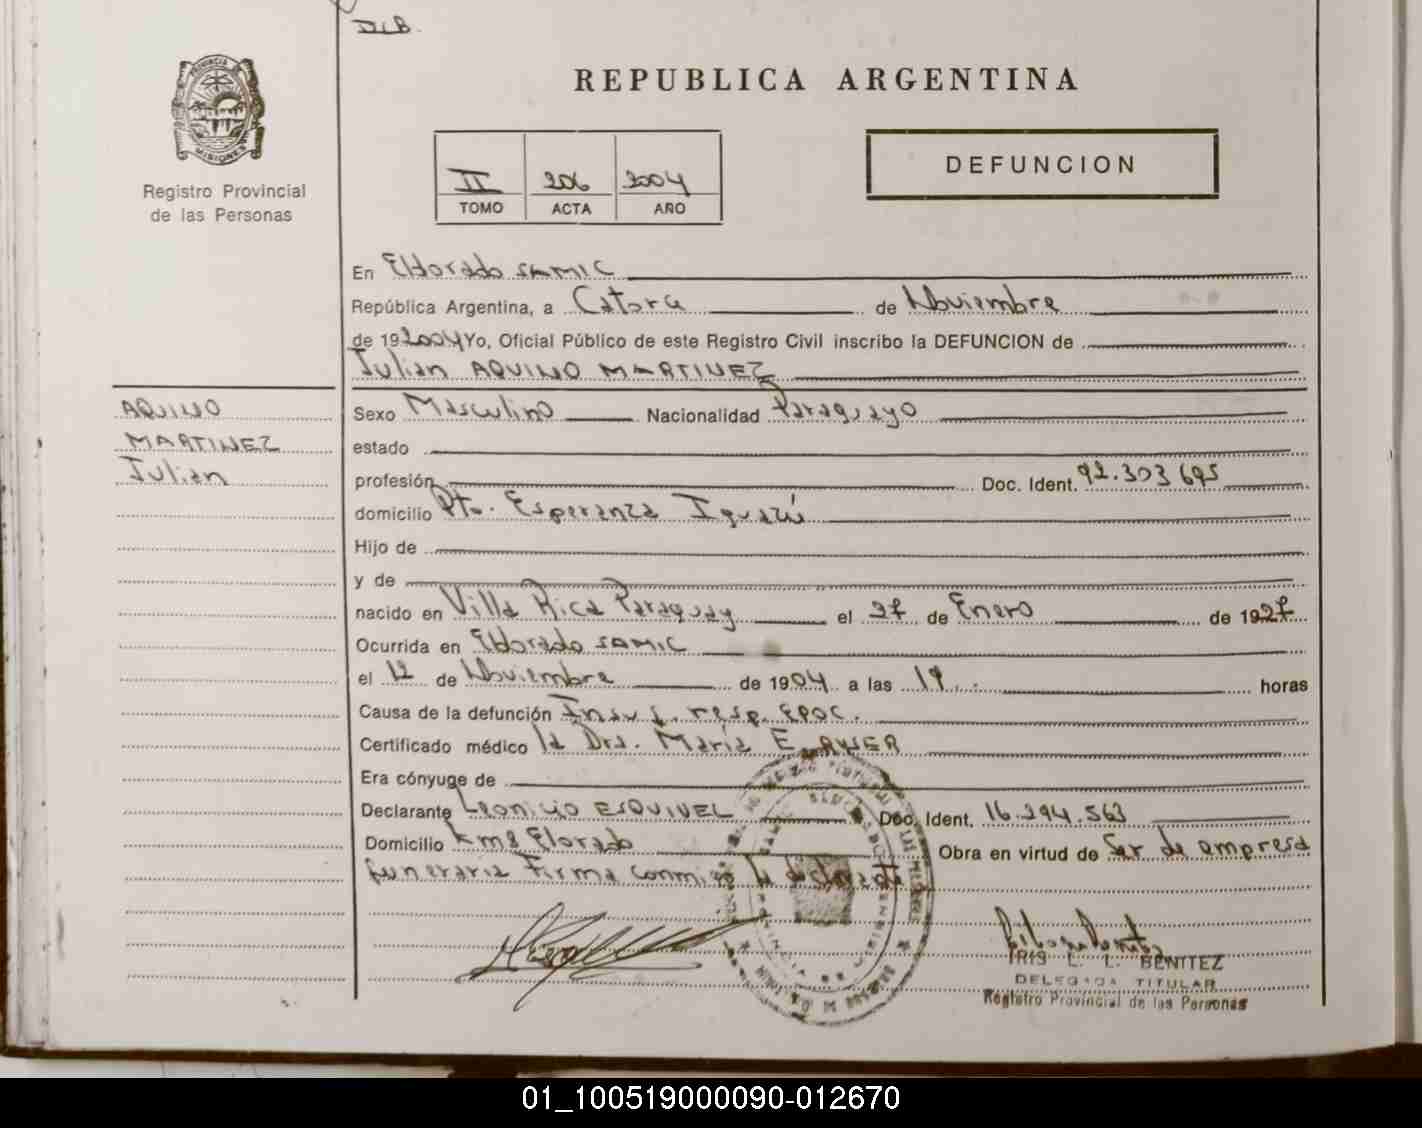 DLB.
REPUBLICA ARGENTINA
PROVINCIA DE
MISIONES
Registro Provincial
de las Personas
II 206 2004
TOMO ACTA AÑO
DEFUNCION
En Eldorado SAMIC
República Argentina, a Catorce de Noviembre
de 19 2004 Yo, Oficial Público de este Registro Civil inscribo la DEFUNCION de
Julian AQUINO MARTINEZ
AQUINO
MARTINEZ
Julian
Sexo Masculino Nacionalidad Paraguayo
estado
profesión Doc. Ident. 92.303 695
domicilio Pto. Esperanza Iguazú
Hijo de
y de
nacido en Villa Rica Paraguay el 27 de Enero de 1927
Ocurrida en Eldorado SAMIC
el 12 de Noviembre de 1904 a las 19 horas
Causa de la defunción Insuf. resp. EPOC.
Certificado médico la Dra. Maria E.
Era cónyuge de
Declarante Leonicio ESQUIVEL Doc. Ident. 16.294.563
Domicilio Km 8 Elorado Obra en virtud de Ser de empresa
funeraria Firma conmigo la declarante
IRIS L. L. BENITEZ
DELEGADA TITULAR
Registro Provincial de las Personas
01_100519000090-012670